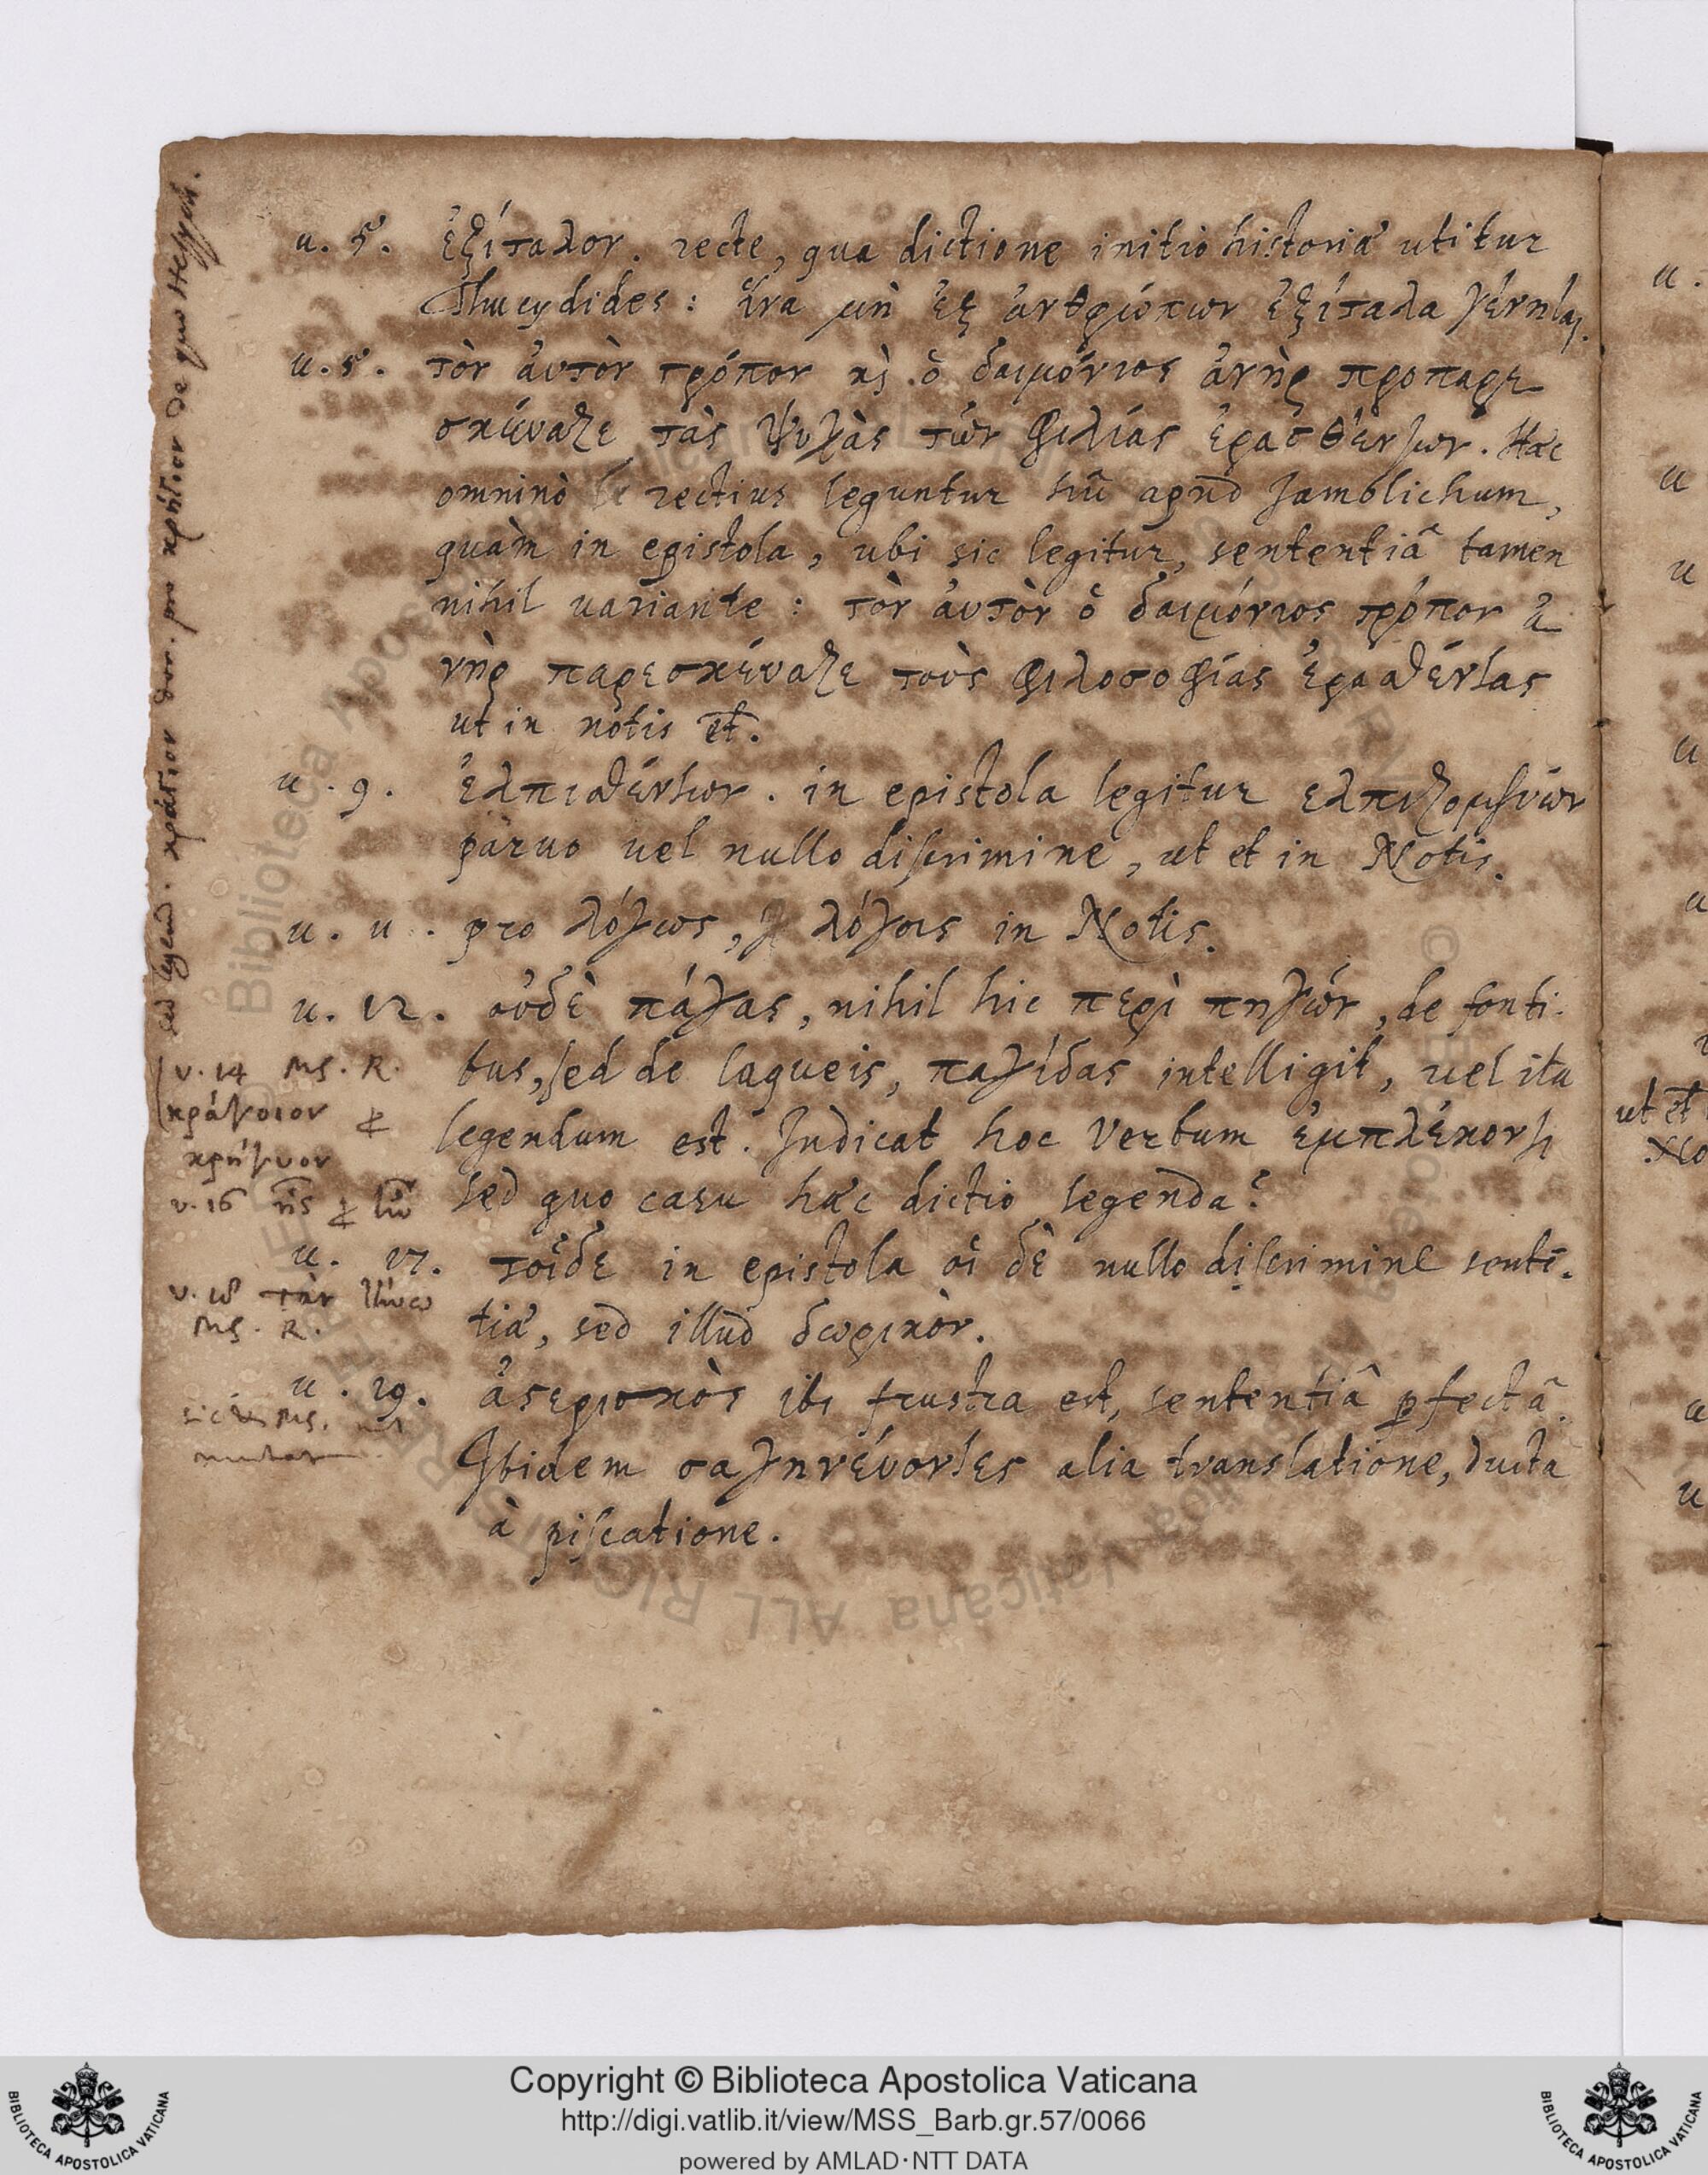 u. 5. ἐξίταλον. recte, qua dictione initio historiæ utitur
Thucydides: ἵνα μὴ ἐξ ἀνθρώπων ἐξίταλα γένηται.
u. 5. τὸν ἀυτὸν τρόπον κὶ ὁ δαιμόνιος ἀνὴρ προπαρε
σκέυαζε τὰς ψυχὰς τῶν φιλίας ἐρασθέντων. Hæc
omninò rectius leguntur hîc apud Jamblichum,
quàm in epistola, ubi sic legitur, sententiâ tamen
nihil uariante: τὸν ἀυτὸν ὁ δαιμόνιος τρόπον ἀ
νὴρ παρεσκέυαζε τοὺς φιλοσοφίας ἐρασθέντας
ut in notis et.
u. 9. ἐλπισθέντων. in epistola legitur ελπιζομένων
paruo uel nullo discrimine, ut et in Notis.
u. 11. pro λόγως, λόγοις in Notis.
u. 12. οὐδὲ πάγας, nihil hic περὶ πηγῶν, de fonti-
bus, sed de laqueis, παγίδας intelligit, uel ita
legendum est. Indicat hoc verbum ἐμπλέκοντι
sed quo casu hæc dictio legenda?
u. 17. τοῖδε in epistola οἱ δὲ nullo discrimine sentē-
tiæ, sed illud δωρικὸν.
u. 19. ἀςεριςκὸς ibi frustra est, sententiâ ꝑfectâ.
Ibidem σαγηνέυοντες alia translatione, ducta
à piscatione.
v. 14 MS. R.
κράγυιον
κρήγυον
v. 16
v. 18 τὰν
MS. R.
sic MS.
sed legend. κράτιον δωρ. pro κρήγυον de quo Hesych.
u.
u
u
u
u
ut et
No
u
u
Copyright © Biblioteca Apostolica Vaticana
http://digi.vatlib.it/view/MSS_Barb.gr.57/0066
powered by AMLAD·NTT DATA
BIBLIOTECA APOSTOLICA VATICANA
BIBLIOTECA APOSTOLICA VATICANA